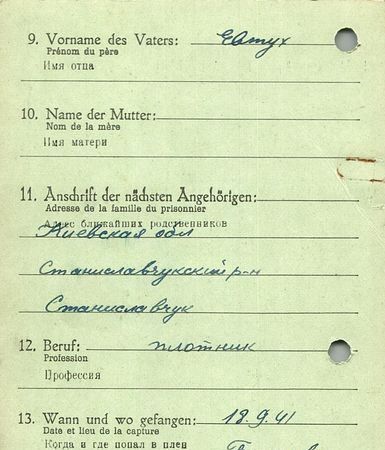 9. Vorname des Vaters: Евтух
Prénom du père
Имя отца
10. Name der Mutter:
Nom de la mère
Имя матери
11. Anschrift der nächsten Angehörigen:
Adresse de la famille du prisonnier
Адрес ближайших родственников
Киевская обл
Станиславчукский р-н
Станиславчук
12. Beruf: плотник
Profession
Профессия
13. Wann und wo gefangen: 18.9.41
Date et lieu de la capture
Когда и где попал в плен